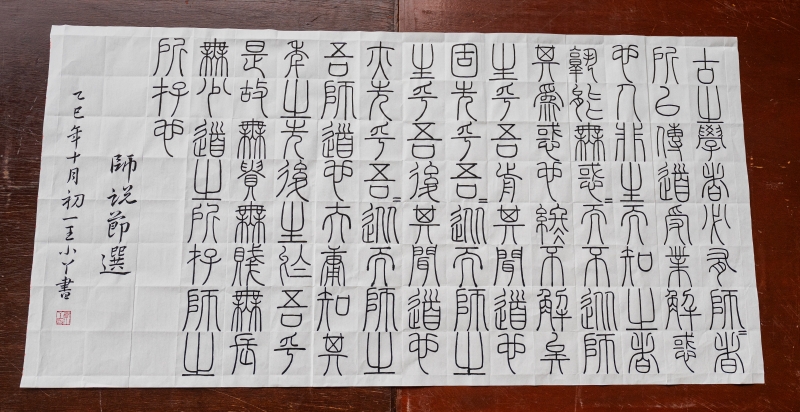 古之學者必有師〻者
所以傳道受業解惑
也人非生而知之者
孰能無惑〻而不從師
其為惑也終不解矣
生乎吾前其聞道也
固先乎吾〻從而師之
生乎吾後其聞道也
亦先乎吾〻從而師之
吾師道也夫庸知其
年之先後生於吾乎
是故無貴無賤無長
無少道之所存師之
所存也
師説節選
乙巳年十月初一王小丫書